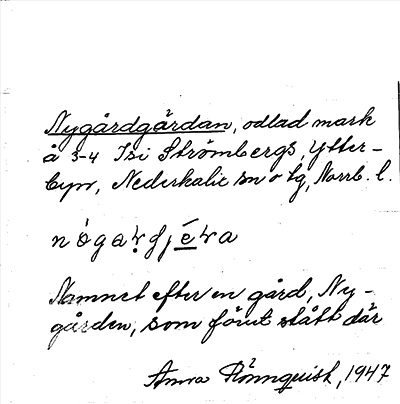 Nygårdgärdan, odlad mark
å 3-4 Isi Strömbergs, Ytter-
byn, Nederkalix sn o tg, Norrb. l.
Namnet efter en gård, Ny-
gården, som förut stått där
Anna Rönnquist, 1947